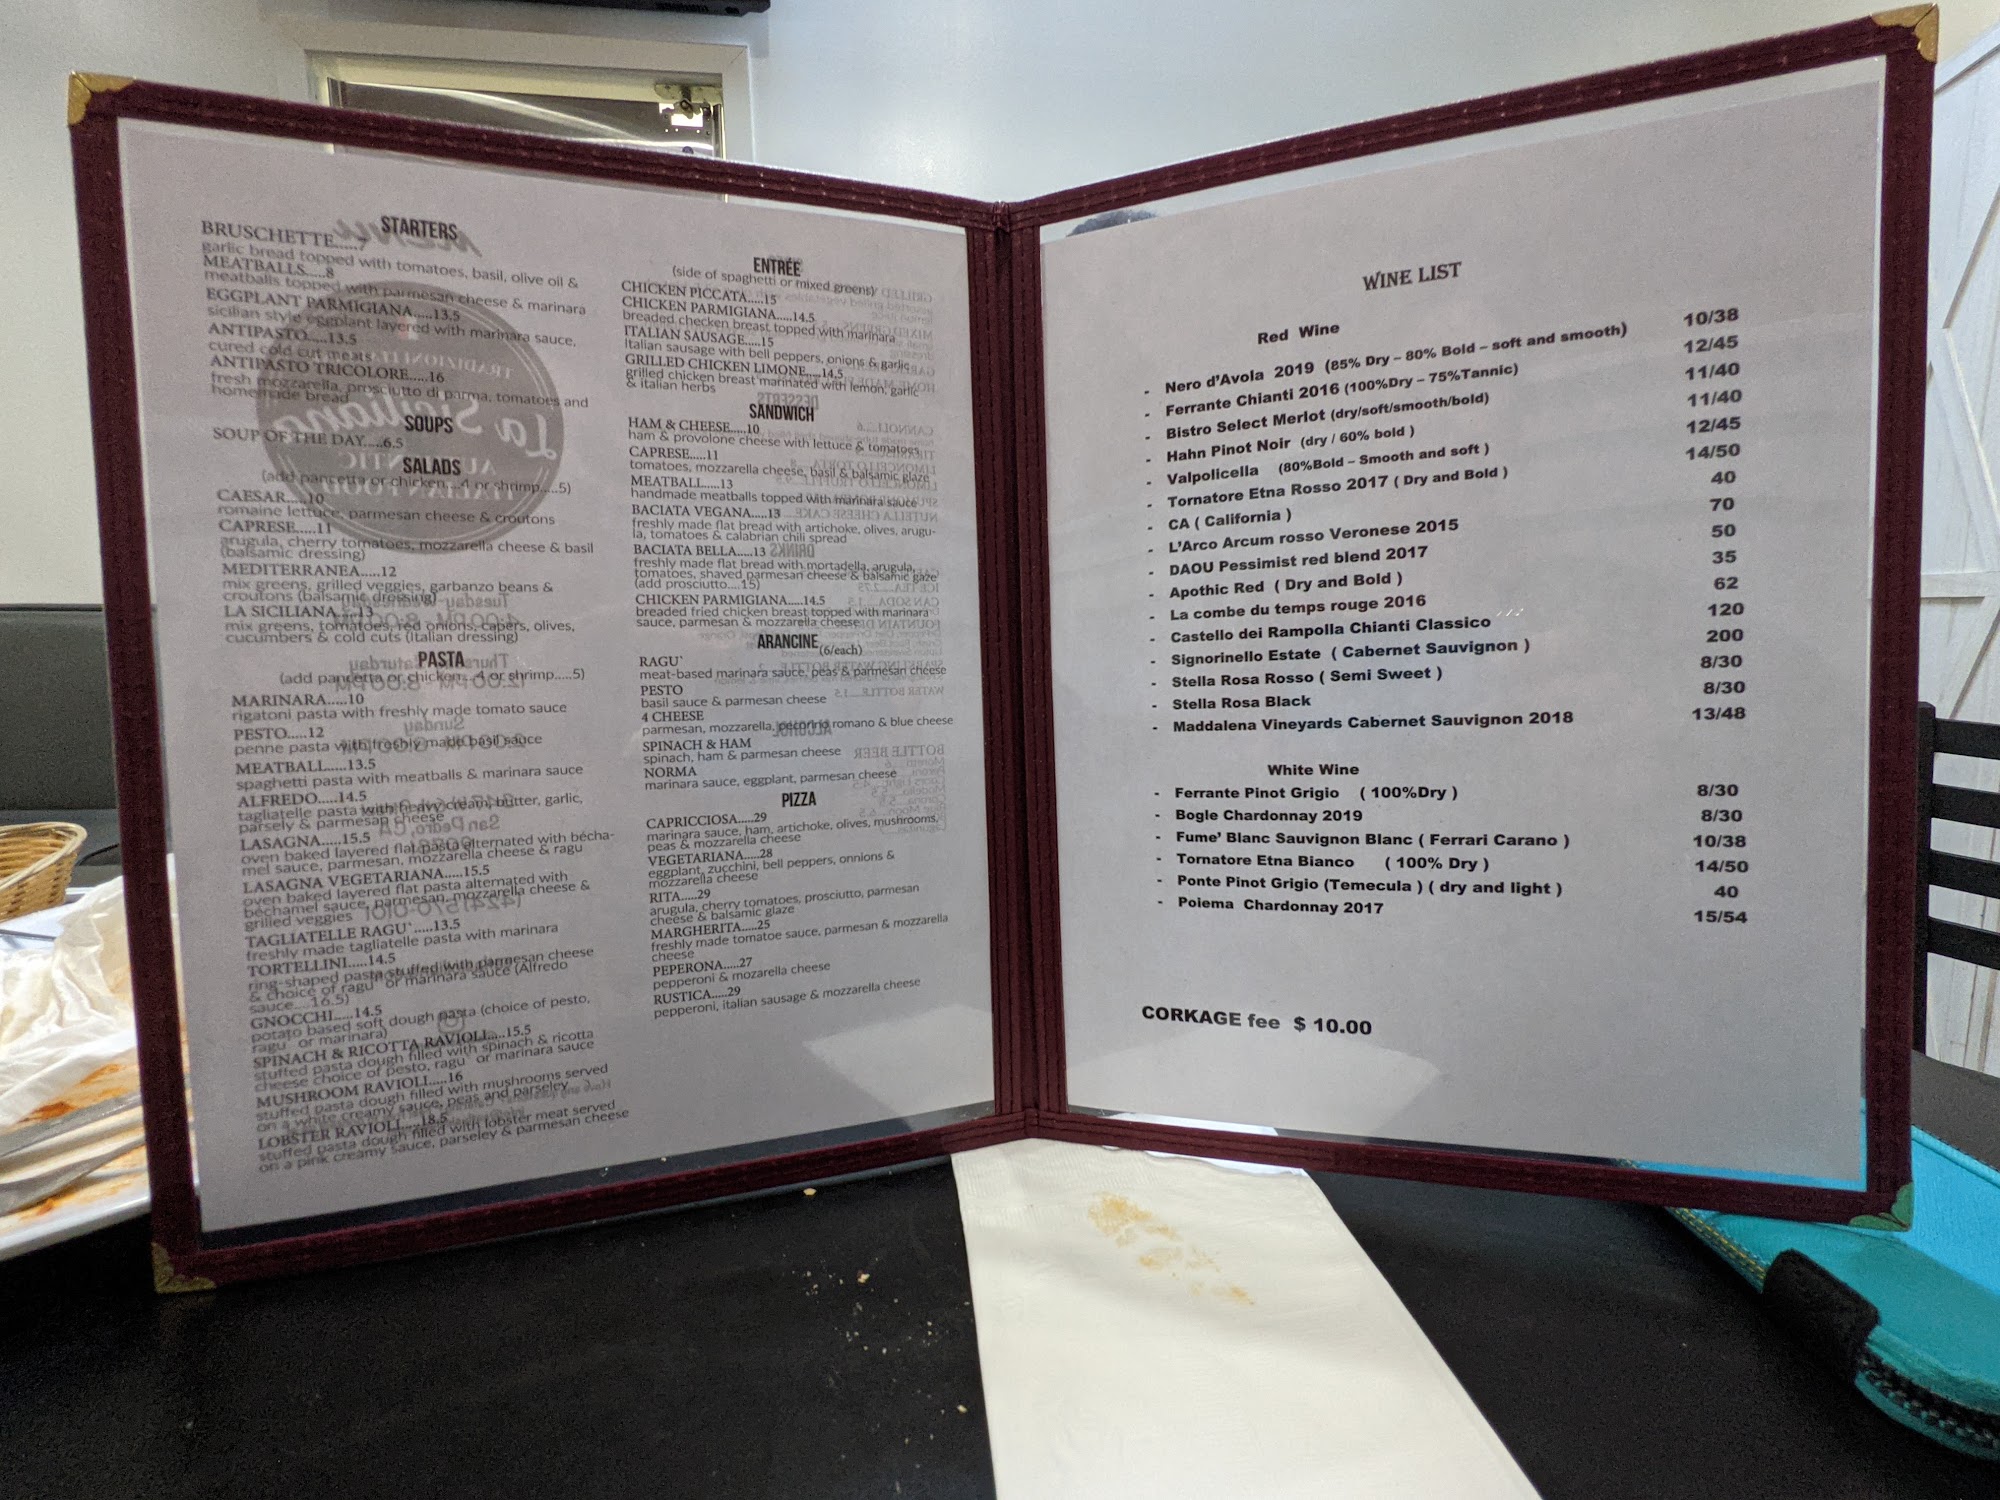 STARTERS
BRUSCHETTE.....7
garlic bread topped with tomatoes, basil, olive oil &
MEATBALLS.....8
meatballs topped with parmesan cheese & marinara
EGGPLANT PARMIGIANA.....13.5
sicilian style eggplant layered with marinara sauce,
ANTIPASTO.....13.5
cured cold cut meats
ANTIPASTO TRICOLORE.....16
fresh mozzarella, prosciutto di parma, tomatoes and
homemade bread
SOUPS
SOUP OF THE DAY.....6.5
SALADS
(add pancetta or chicken....4 or shrimp.....5)
CAESAR.....10
romaine lettuce, parmesan cheese & croutons
CAPRESE.....11
arugula, cherry tomatoes, mozzarella cheese & basil
(balsamic dressing)
MEDITERRANEA.....12
mix greens, grilled veggies, garbanzo beans &
croutons (balsamic dressing)
LA SICILIANA.....13
mix greens, tomatoes, red onions, capers, olives,
cucumbers & cold cuts (Italian dressing)
PASTA
(add pancetta or chicken....4 or shrimp.....5)
MARINARA.....10
rigatoni pasta with freshly made tomato sauce
PESTO.....12
penne pasta with freshly made basil sauce
MEATBALL.....13.5
spaghetti pasta with meatballs & marinara sauce
ALFREDO.....14.5
tagliatelle pasta with heavy cream, butter, garlic,
parsely & parmesan cheese
LASAGNA.....15.5
oven baked layered flat pasta alternated with bécha-
mel sauce, parmesan, mozzarella cheese & ragu
LASAGNA VEGETARIANA.....15.5
oven baked layered flat pasta alternated with
béchamel sauce, parmesan, mozzarella cheese &
grilled veggies
TAGLIATELLE RAGU`.....13.5
freshly made tagliatelle pasta with marinara
TORTELLINI.....14.5
ring-shaped pasta stuffed with parmesan cheese
& choice of ragu` or marinara sauce (Alfredo
sauce....16.5)
GNOCCHI.....14.5
potato based soft dough pasta (choice of pesto,
ragu` or marinara)
SPINACH & RICOTTA RAVIOLI.....15.5
stuffed pasta dough filled with spinach & ricotta
cheese choice of pesto, ragu` or marinara sauce
MUSHROOM RAVIOLI.....16
stuffed pasta dough filled with mushrooms served
on a white creamy sauce, peas and parseley
LOBSTER RAVIOLI.....18.5
stuffed pasta dough filled with lobster meat served
on a pink creamy sauce, parseley & parmesan cheese
ENTRÉE
(side of spaghetti or mixed greens)
CHICKEN PICCATA.....15
CHICKEN PARMIGIANA.....14.5
breaded checken breast topped with marinara
ITALIAN SAUSAGE.....15
Italian sausage with bell peppers, onions & garlic
GRILLED CHICKEN LIMONE.....14.5
grilled chicken breast marinated with lemon, garlic
& italian herbs
SANDWICH
HAM & CHEESE.....10
ham & provolone cheese with lettuce & tomatoes
CAPRESE.....11
tomatoes, mozzarella cheese, basil & balsamic glaze
MEATBALL.....13
handmade meatballs topped with marinara sauce
BACIATA VEGANA.....13
freshly made flat bread with artichoke, olives, arugu-
la, tomatoes & calabrian chili spread
BACIATA BELLA.....13
freshly made flat bread with mortadella, arugula,
tomatoes, shaved parmesan cheese & balsamic glaze
(add prosciutto....15)
CHICKEN PARMIGIANA.....14.5
breaded fried chicken breast topped with marinara
sauce, parmesan & mozzarella cheese
ARANCINE (6/each)
RAGU`
meat-based marinara sauce, peas & parmesan cheese
PESTO
basil sauce & parmesan cheese
4 CHEESE
parmesan, mozzarella, pecorino romano & blue cheese
SPINACH & HAM
spinach, ham & parmesan cheese
NORMA
marinara sauce, eggplant, parmesan cheese
PIZZA
CAPRICCIOSA.....29
marinara sauce, ham, artichoke, olives, mushrooms,
peas & mozzarella cheese
VEGETARIANA.....28
eggplant, zucchini, bell peppers, onnions &
mozzarella cheese
RITA.....29
arugula, cherry tomatoes, prosciutto, parmesan
cheese & balsamic glaze
MARGHERITA.....25
freshly made tomatoe sauce, parmesan & mozzarella
cheese
PEPERONA.....27
pepperoni & mozarella cheese
RUSTICA.....29
pepperoni, italian sausage & mozzarella cheese
WINE LIST
Red Wine
- Nero d'Avola 2019 (85% Dry – 80% Bold – soft and smooth) 10/38
- Ferrante Chianti 2016 (100%Dry – 75%Tannic) 12/45
- Bistro Select Merlot (dry/soft/smooth/bold) 11/40
- Hahn Pinot Noir (dry / 60% bold ) 11/40
- Valpolicella (80%Bold – Smooth and soft ) 12/45
- Tornatore Etna Rosso 2017 ( Dry and Bold ) 14/50
- CA ( California ) 40
- L'Arco Arcum rosso Veronese 2015 70
- DAOU Pessimist red blend 2017 50
- Apothic Red ( Dry and Bold ) 35
- La combe du temps rouge 2016 62
- Castello dei Rampolla Chianti Classico 120
- Signorinello Estate ( Cabernet Sauvignon ) 200
- Stella Rosa Rosso ( Semi Sweet ) 8/30
- Stella Rosa Black 8/30
- Maddalena Vineyards Cabernet Sauvignon 2018 13/48
White Wine
- Ferrante Pinot Grigio ( 100%Dry ) 8/30
- Bogle Chardonnay 2019 8/30
- Fume' Blanc Sauvignon Blanc ( Ferrari Carano ) 10/38
- Tornatore Etna Bianco ( 100% Dry ) 14/50
- Ponte Pinot Grigio (Temecula ) ( dry and light ) 40
- Poiema Chardonnay 2017 15/54
CORKAGE fee $ 10.00